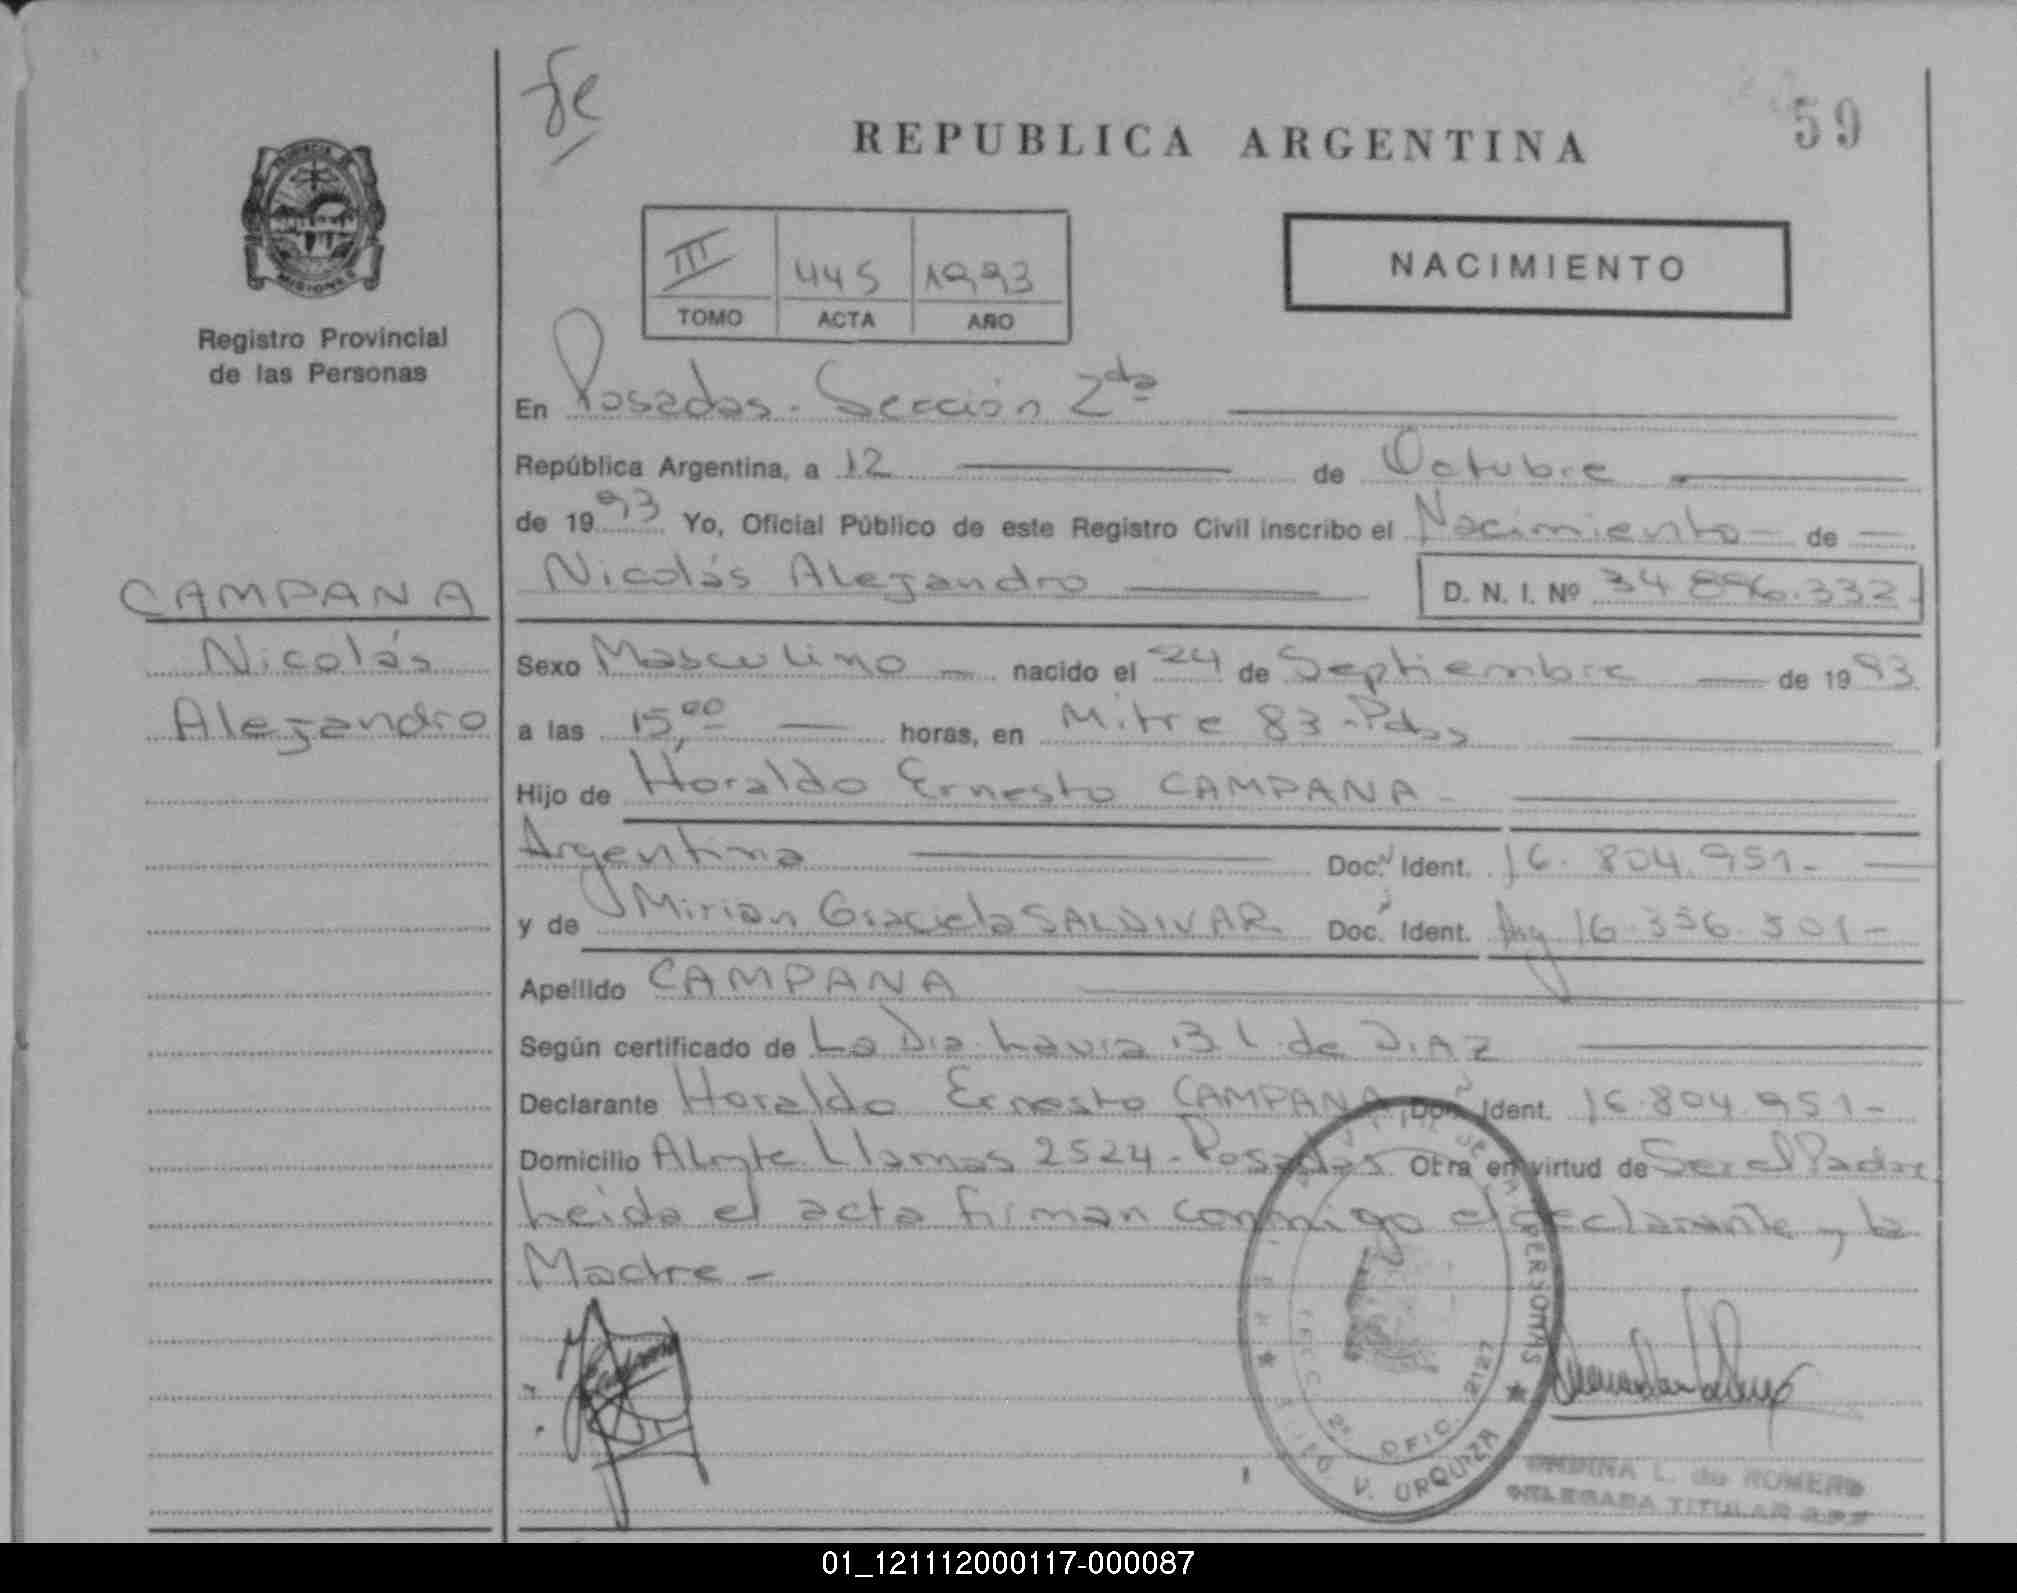 fe
59
REPUBLICA ARGENTINA
PROVINCIA DE
MISIONES
Registro Provincial
de las Personas
III 445 1993
TOMO ACTA AÑO
NACIMIENTO
En Posadas - Sección 2da
República Argentina, a 12 de Octubre
de 1993 Yo, Oficial Público de este Registro Civil inscribo el Nacimiento de
Nicolás Alejandro D. N. I. Nº 34.896.332
CAMPANA
Nicolás
Alejandro
Sexo Masculino nacido el 24 de Septiembre de 1993
a las 15,00 horas, en Mitre 83 - Pdas
Hijo de Horaldo Ernesto CAMPANA -
Argentina Doc. Ident. 16.804.951 -
y de Mirian Graciela SALDIVAR Doc. Ident. Arg 16.336.301 -
Apellido CAMPANA
Según certificado de La Dra. Laura B L. de DIAZ
Declarante Horaldo Ernesto CAMPANA Doc. Ident. 16.804.951 -
Domicilio Almte. Llamos 2524 - Posadas Otra en virtud de Ser el Padre
Leida el acta firman conmigo el declarante y la
Madre -
PERSONAS
SECC 2ª OFIC. 2127
V. URQUIZA
ONDINA L. de ROMERO
DELEGADA TITULAR
01_121112000117-000087